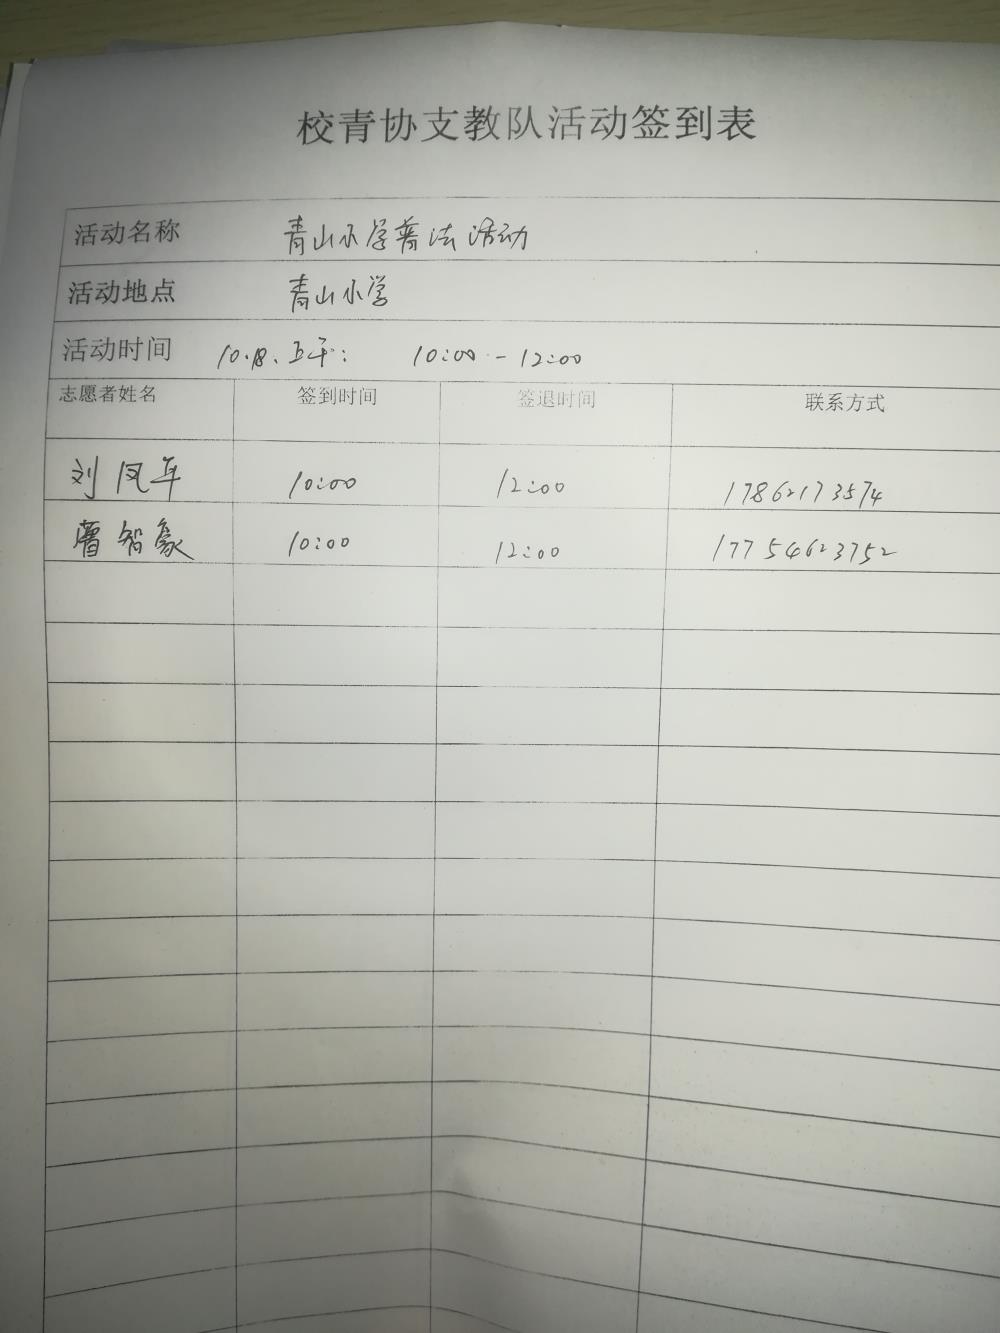 校青协支教队活动签到表
活动名称 青山小学普法活动
活动地点 青山小学
活动时间 10.18. 上午: 10:00 - 12:00
志愿者姓名 签到时间 签退时间 联系方式
刘凤年 10:00 12:00 17862173574
曹智豪 10:00 12:00 17754623752